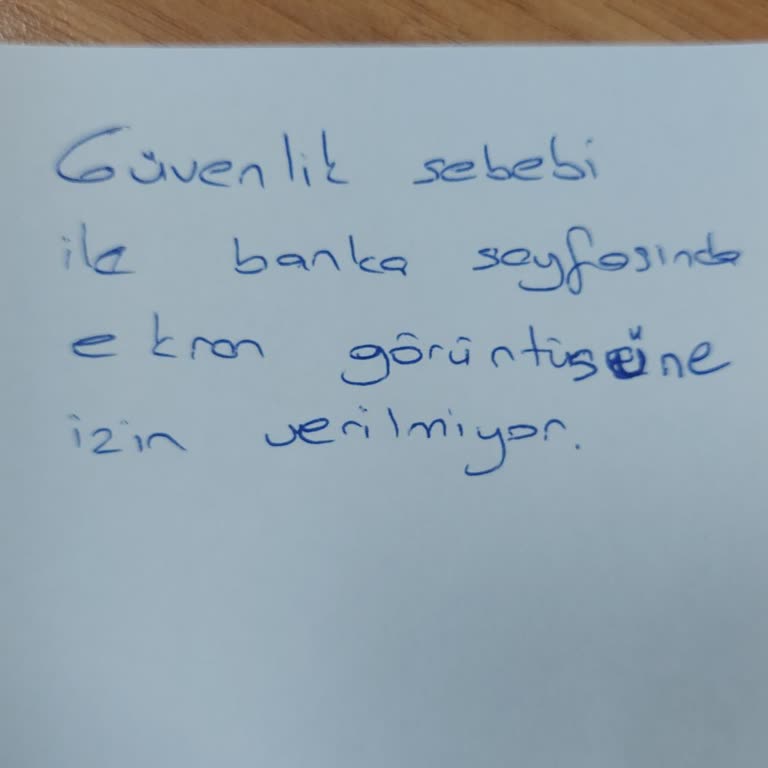 Güvenlik sebebi
ile banka sayfasında
ekran görüntüsüne
izin verilmiyor.